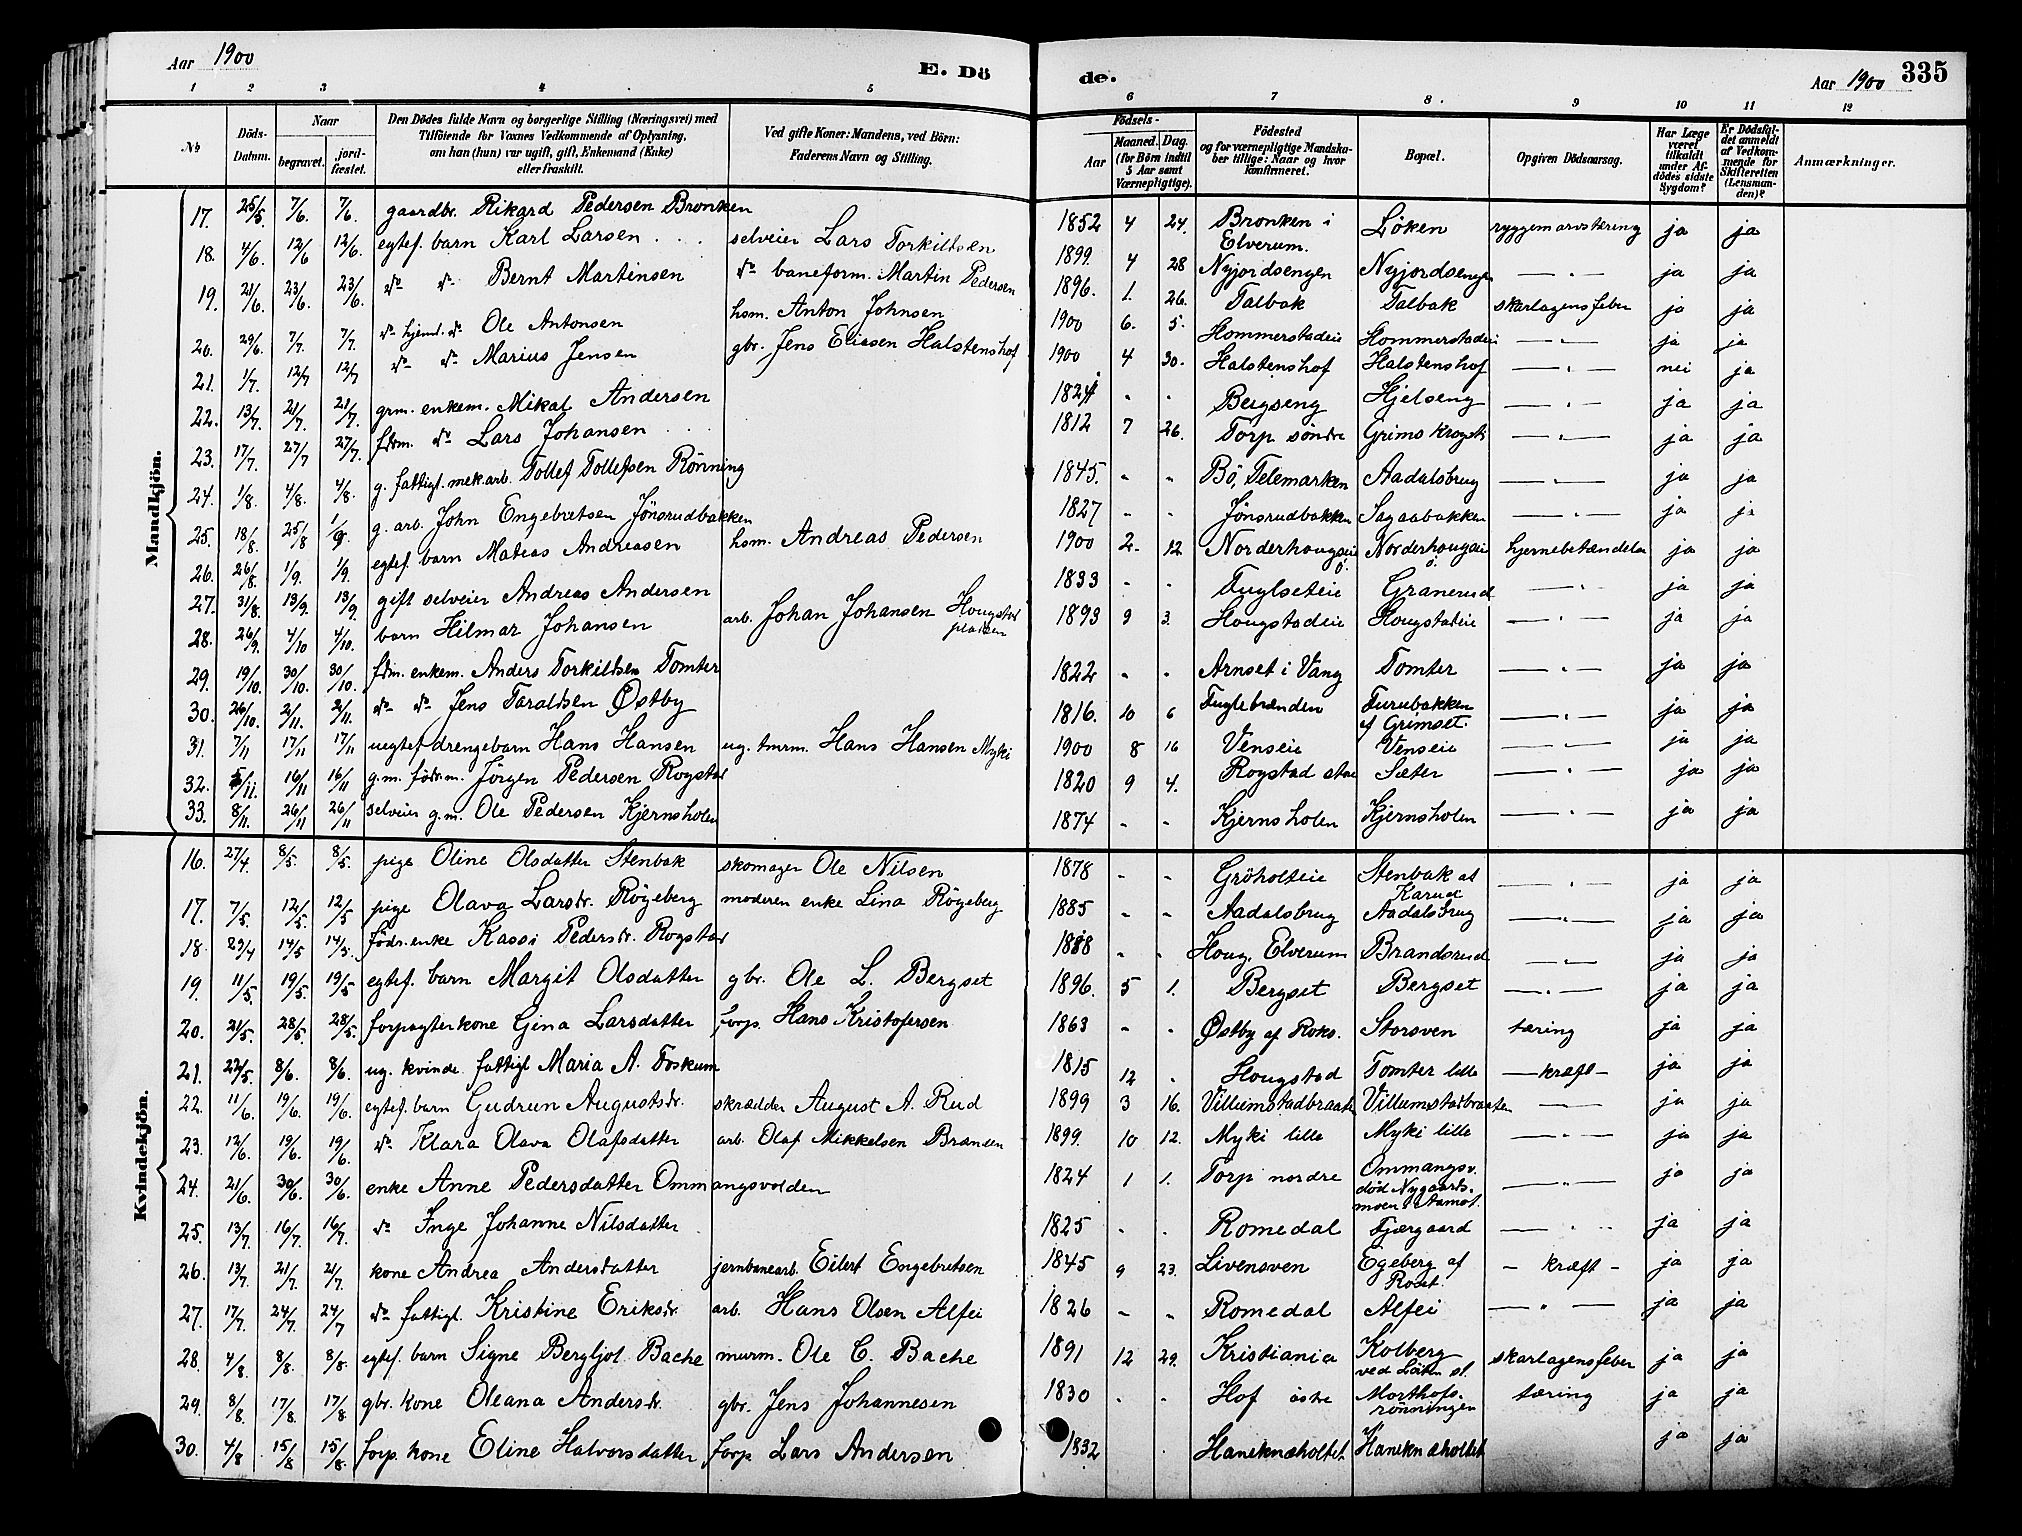 Aar 1900
E. Dö
de.
Aar 1900
335
1 2 3 4 5 6 7 8. 9 10 11 12
No
Döds-Datum.
Naar
begravet.
jord-fæstet.
Den Dödes fulde Navn og borgerlige Stilling (Næringsvei) med Tilföiende for Voxnes Vedkommende af Oplysning, om han (hun) var ugift, gift, Enkemand (Enke) eller fraskilt.
Ved gifte Koner: Mandens, ved Börn: Faderens Navn og Stilling.
Födsels-
Aar
Maaned. Dag.
(for Börn indtil 5 Aar samt Værnepligtige).
Födested og for værnepligtige Mandskaber tillige: Naar og hvor konfirmeret.
Bopæl.
Opgiven Dödsaarsag.
Har Læge været tilkaldt under Afdödes sidste Sygdom?
Er Dödsfaldet anmeldt af Vedkommende for Skifteretten (Lensmanden)?
Anmærkninger.
Mandkjön.
17. 25/5. 7/6. 7/6. gaardbr. Rikard Pedersen Bronken 1852 4 24. Bronken i Elverum. Löken ryggemarvstæring ja ja
18. 4/6. 12/6 12/6. egtef. barn Karl Larsen selveier Lars Torkildsen 1899. 4 28 Nyjordsengen Nyjordsengen — " — ja ja
19. 21/6. 23/6. 23/6. do do Bernt Martinsen do baneform. Martin Pedersen 1896. 1. 26. Talbak Talbak skarlagensfeber ja ja
20. 29/6. 7/7. 7/7. do hjemd. do Ole Antonsen hsm. Anton Johnsen 1900 6. 5. Hommerstadeie Hommerstadeie — " — ja ja
21. 1/7. 12/7 12/7 do do Marius Jensen gbr. Jens Eliasen Halstenshof 1900 4 30. Halstenshof Halstenshof — " — nei ja
22. 13/7. 21/7. 21/7. grm. enkem. Mikal Andersen 1824 " " Bergseng Hjelseng — " — ja ja
23. 17/7. 27/7 27/7. fdrm. do Lars Johansen 1812 7 26. Torp söndre Grims — " — ja ja
24. 1/8. 4/8. 4/8. g. fattigl. mek.arb. Tollef Tollefsen Rönning 1845. " " Bö, Telemarken Aadalsbrug — " — ja ja
25. 18/8. 25/8 1/9. g. arb. John Engebretsen Jönsrudbakken 1827 " " Jönsrudbakken Sagaabakken — " — ja ja
26. 26/8. 1/9. 1/9. egtef. barn Mateas Andreasen hsm. Andreas Pedersen 1900 2. 12 Norderhougseie ö. Norderhougseie ö. hjernebetændelse ja ja
27. 31/8. 13/9. 13/9. gift selveier Andreas Andersen 1833 " " Fuglseteie Granerud — " — ja ja
28. 26/9. 4/10 4/10. barn Hilmar Johansen arb. Johan Johansen Hougstadpladsen 1893 9 3. Hougstadeie Hougstadeie — " — ja ja
29. 19/10. 30/10. 30/10. fdm. enkem. Anders Torkildsen Tomter 1822 " " Arnset i Vang Tomter — " — ja ja
30. 26/10. 2/11. 2/11. do do Jens Taraldsen Østby 1816. 10 6 Fuglebrænden Furubakken af Grimset. — " — ja ja
31. 7/11 17/11 17/11 uegtef drengebarn Hans Hansen ug. tmrm. Hans Hansen Myki 1900 8 16 Venseie Venseie — " — ja ja
32. 5/11. 16/11 16/11 g.m. födrm. Jörgen Pedersen Rogstad 1820 9 4. Rogstad store Sæter — " — ja ja
33. 8/11. 26/11 26/11 selveier g.m. Ole Pedersen Kjernsholen 1874 " " Kjernsholen Kjernsholen ja ja
Kvindekjön.
16. 27/4 8/5 8/5. pige Oline Olsdatter Stenbak skomager Ole Nilsen 1878 " " Gröholteie Stenbak at Karud — " — ja ja
17. 7/5. 12/5. 12/5 pige Olava Larsdr. Rögeberg moderen enke Lina Rögeberg 1885 " " Aadalsbrug Aadalsbrug — " — ja ja
18. 29/4 14/5 14/5. födr. enke Kassi Pedersdr. Rogstad 1818 " " Houg, Elverum Brandsrud — " — ja ja
19. 11/5. 19/5. 19/5 egtef. barn Margit Olsdatter gbr. Ole L. Bergset 1896. 5 1. Bergset Bergset — " — ja ja
20. 21/5. 28/5. 28/5. forpagterkone Gina Larsdatter forp. Hans Kristofersen 1863 " " Østby af Roks. Storsven tæring ja ja
21. 22/5. 8/6. 8/6. ug. kvinde fattigl Maria A. Foskum 1815 12 . Hougstad Tomter lille — kræft — ja ja
22. 11/6. 19/6. 19/6. egtef. barn Gudrun Augustsdr. skrædder August A. Rud 1899 3 16. Villumstadbraaten Villumstadbraaten — " — ja ja
23. 12/6. 19/6. 19/6. do Klara Olava Olafsdatter arb. Olaf Mikkelsen Brænden 1899. 10 12. Myki lille Myki lille — " — ja ja
24. 21/6. 30/6. 30/6. enke Anne Pedersdatter Ommangsvolden 1824 1 1. Torp nordre Ommangsv. död Nygaardsmoen i Aamot. — " — ja ja
25. 13/7. 16/7. 16/7. do Inge Johanne Nilsdatter 1825 . . Romedal Fjærgaard — " — ja ja
26. 13/7. 21/7. 21/7. kone Andrea Andersdatter jernbanearb. Eilert Engebretsen 1845 9 23. Livensven Egeberg af Roat. — kræft — ja ja
27. 17/7. 24/7. 24/7 do fattigl. Kristine Eriksdr. arb. Hans Olsen Alfei 1826 " " Romedal Alfei — " — ja ja
28. 4/8. 8/8. 8/8. egtef. barn Signe Bergljot Bache murm. Ole C. Bache 1891 12 29. Kristiania Kolberg ved Löiten st. skarlagensfeber ja ja
29. 8/8. 17/8. 17/8. gbr. kone Oleana Andersdr. gbr. Jens Johannesen 1830 . . Hof östre Morthofsrönningen tæring ja ja
30. 4/8 15/8 15/8. forp. kone Eline Halvorsdatter forp Lars Andersen 1832 . Haneknæholtet Haneknæholtet ja ja